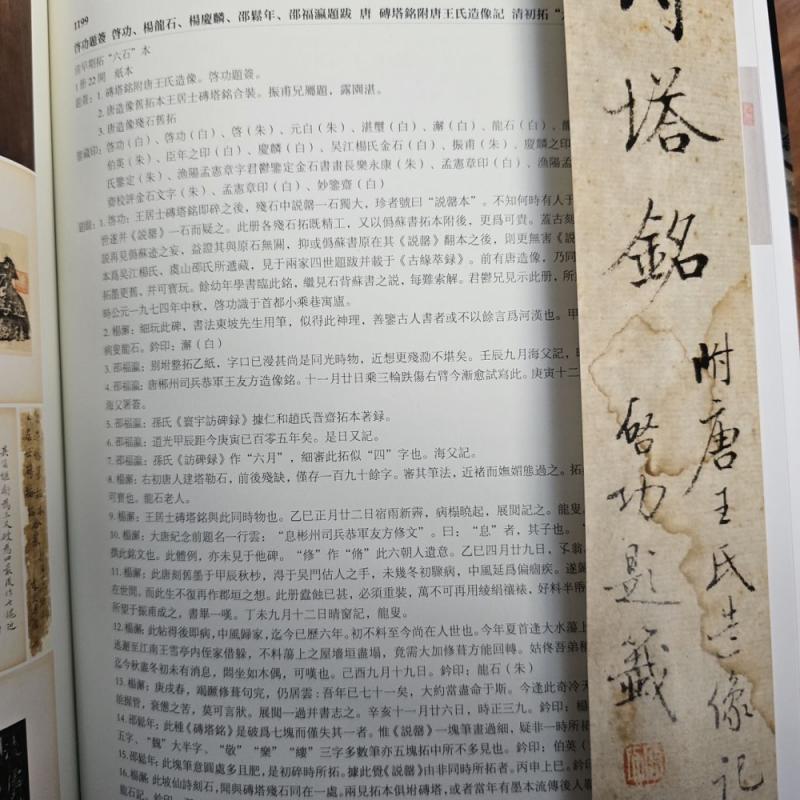 1199
啓功題簽 啓功、楊龍石、楊慶麟、邵鬆年、邵福瀛題跋 唐 磚塔銘附唐王氏造像記 清初拓“六
清早期拓“六石”本
1册22開 紙本
題簽：1. 磚塔銘附唐王氏造像。啓功題簽。
2. 唐造像舊拓本王居士磚塔銘合裝。振甫兄屬題，露園湛。
3. 唐造像殘石舊拓
鑒藏印：啓功（白）、啓功（白）、啓（朱）、元白（朱）、湛壐（白）、澥（白）、龍石（白）、龍
伯英（朱）、臣年之印（白）、慶麟（白）、吴江楊氏金石（白）、振甫（朱）、慶麟之印
氏鑒定（朱）、漁陽孟憲章字君鬱鑒定金石書畫長樂永康（朱）、孟憲章印（白）、漁陽
齋校評金石文字（朱）、孟憲章印（白）、妙鑒齋（白）
題跋：1. 啓功：王居士磚塔銘即碎之後，殘石中説罄一石獨大，珍者號曰“説罄本”。不知何時有人于
世遂并《説罄》一石而疑之。此册各殘石拓既精工，又以僞蘇書拓本附後，更爲可貴。蓋古刻
説再見僞蘇迹之妄，益證其與原石無關，抑或僞蘇書原在其《説罄》翻本之後，則更無害《説
本爲吴江楊氏，虞山邵氏所遞藏，見于兩家四世題跋并載于《古緣萃録》。前有唐造像，乃同
拓墨更舊，并可寶玩。餘幼年學書臨此銘，繼見石背蘇書之説，每難索解。君鬱兄見示此册，所
時公元一九七四年中秋，啓功識于首都小乘巷寓廬。
2. 楊澥：細玩此碑，書法東坡先生用筆，似得此神理，善鑒古人書者或不以餘言爲河漢也。甲
病叟龍石。鈐印：澥（白）
3. 邵福瀛：别坿整拓乙紙，字口已漫甚尚是同光時物，近想更殘泐不堪矣。壬辰九月海父記，時
4. 邵福瀛：唐郴州司兵恭軍王友方造像銘。十一月廿日乘三輪跌傷右臂今漸愈試寫此。庚寅十二
海父署簽。
5. 邵福瀛：孫氏《寰宇訪碑録》據仁和趙氏晋齋拓本著録。
6. 邵福瀛：道光甲辰距今庚寅已百零五年矣。是日又記。
7. 邵福瀛：孫氏《訪碑録》作“六月”，細審此拓似“四”字也。海父記。
8. 楊澥：右初唐人建塔勒石，前後殘缺，僅存一百九十餘字。審其筆法，近褚而嫵媚態過之。拓
可寶也。龍石老人。
9. 楊澥：王居士磚塔銘與此同時物也。乙巳正月廿二日宿雨新霽，病榻曉起，展閲記之。龍叟
10. 楊澥：大唐紀念前題名一行雲：“息彬州司兵恭軍友方修文”。曰：“息”者，其子也。“
撰此銘文也。此體例，亦未見于他碑。“修”作“脩”此六朝人遺意。乙巳四月廿九日，
11. 楊澥：此唐刻舊墨于甲辰秋杪，得于吴門估人之手，未幾冬初驟病，中風延爲偏痼疾。遂歸
在世間。而此生不復再作郡垣之想。此册蠹蝕已甚，必須重裝，萬不可再用綾絹禳裱，好料半
所望于振甫成之，書畢一嘆。丁未九月十二日晴窗記，龍叟。
12. 楊澥：此帖得後即病，中風歸家，迄今已歷六年。初不料至今尚在人世也。今年夏首逢大水蕩上
逃避至江南王雪亭内侄家借躲，不料蕩上之屋墻垣盡塌，竟需大加修葺方能回轉。姑佟吾弟
迄今秋盡冬初未有消息，悶坐如木偶，可嘆也。己酉九月十九日。鈐印：龍石（朱）
13. 楊澥：庚戌春，竭蹶修葺句完，仍居雲：吾年已七十一矣，大約當盡命于斯。今逢此奇冷天
能握管，衰憊之苦，莫可言狀。展閲一過并書志之。辛亥十一月廿六日，時正三九。鈐印：
14. 邵鬆年：此種《磚塔銘》是破爲七塊而僅失其一者。惟《説罄》一塊筆畫過細，疑非一時所
五字，“魏”大半字，“敬”“樂”“縷”三字多數筆亦五塊拓中所不多見也。鈐印：伯英（
15. 邵鬆年：此塊筆意圓處多且肥，是初碎時所拓。據此覺《説罄》由非同時所拓者。丙申上巳。鈐
16. 楊澥：此坡仙詩刻石，聞與磚塔銘殘石同在一處。兩見拓本俱坿磚塔，或者當年有墨本流傳後人
龍石記。
塔銘
附唐王氏造像記
啓功題籤